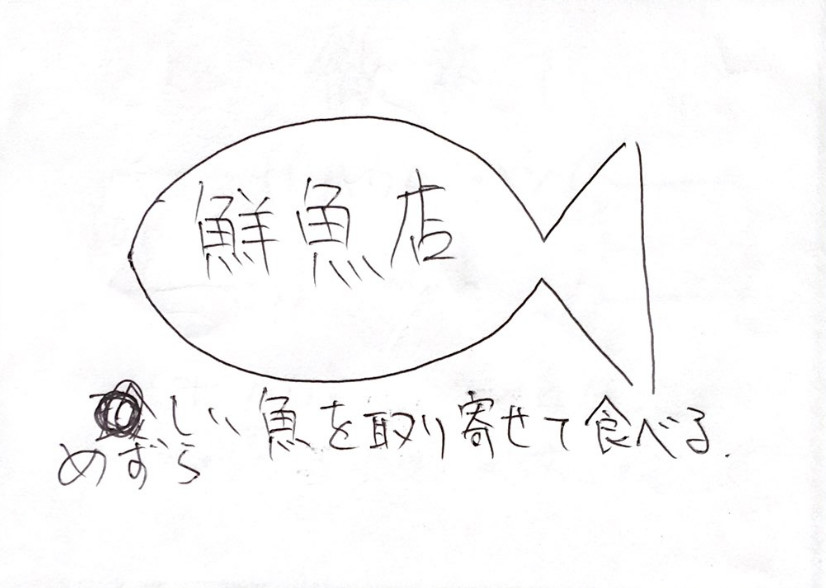 鮮魚店
しい魚を取り寄せて食べる.
めずら